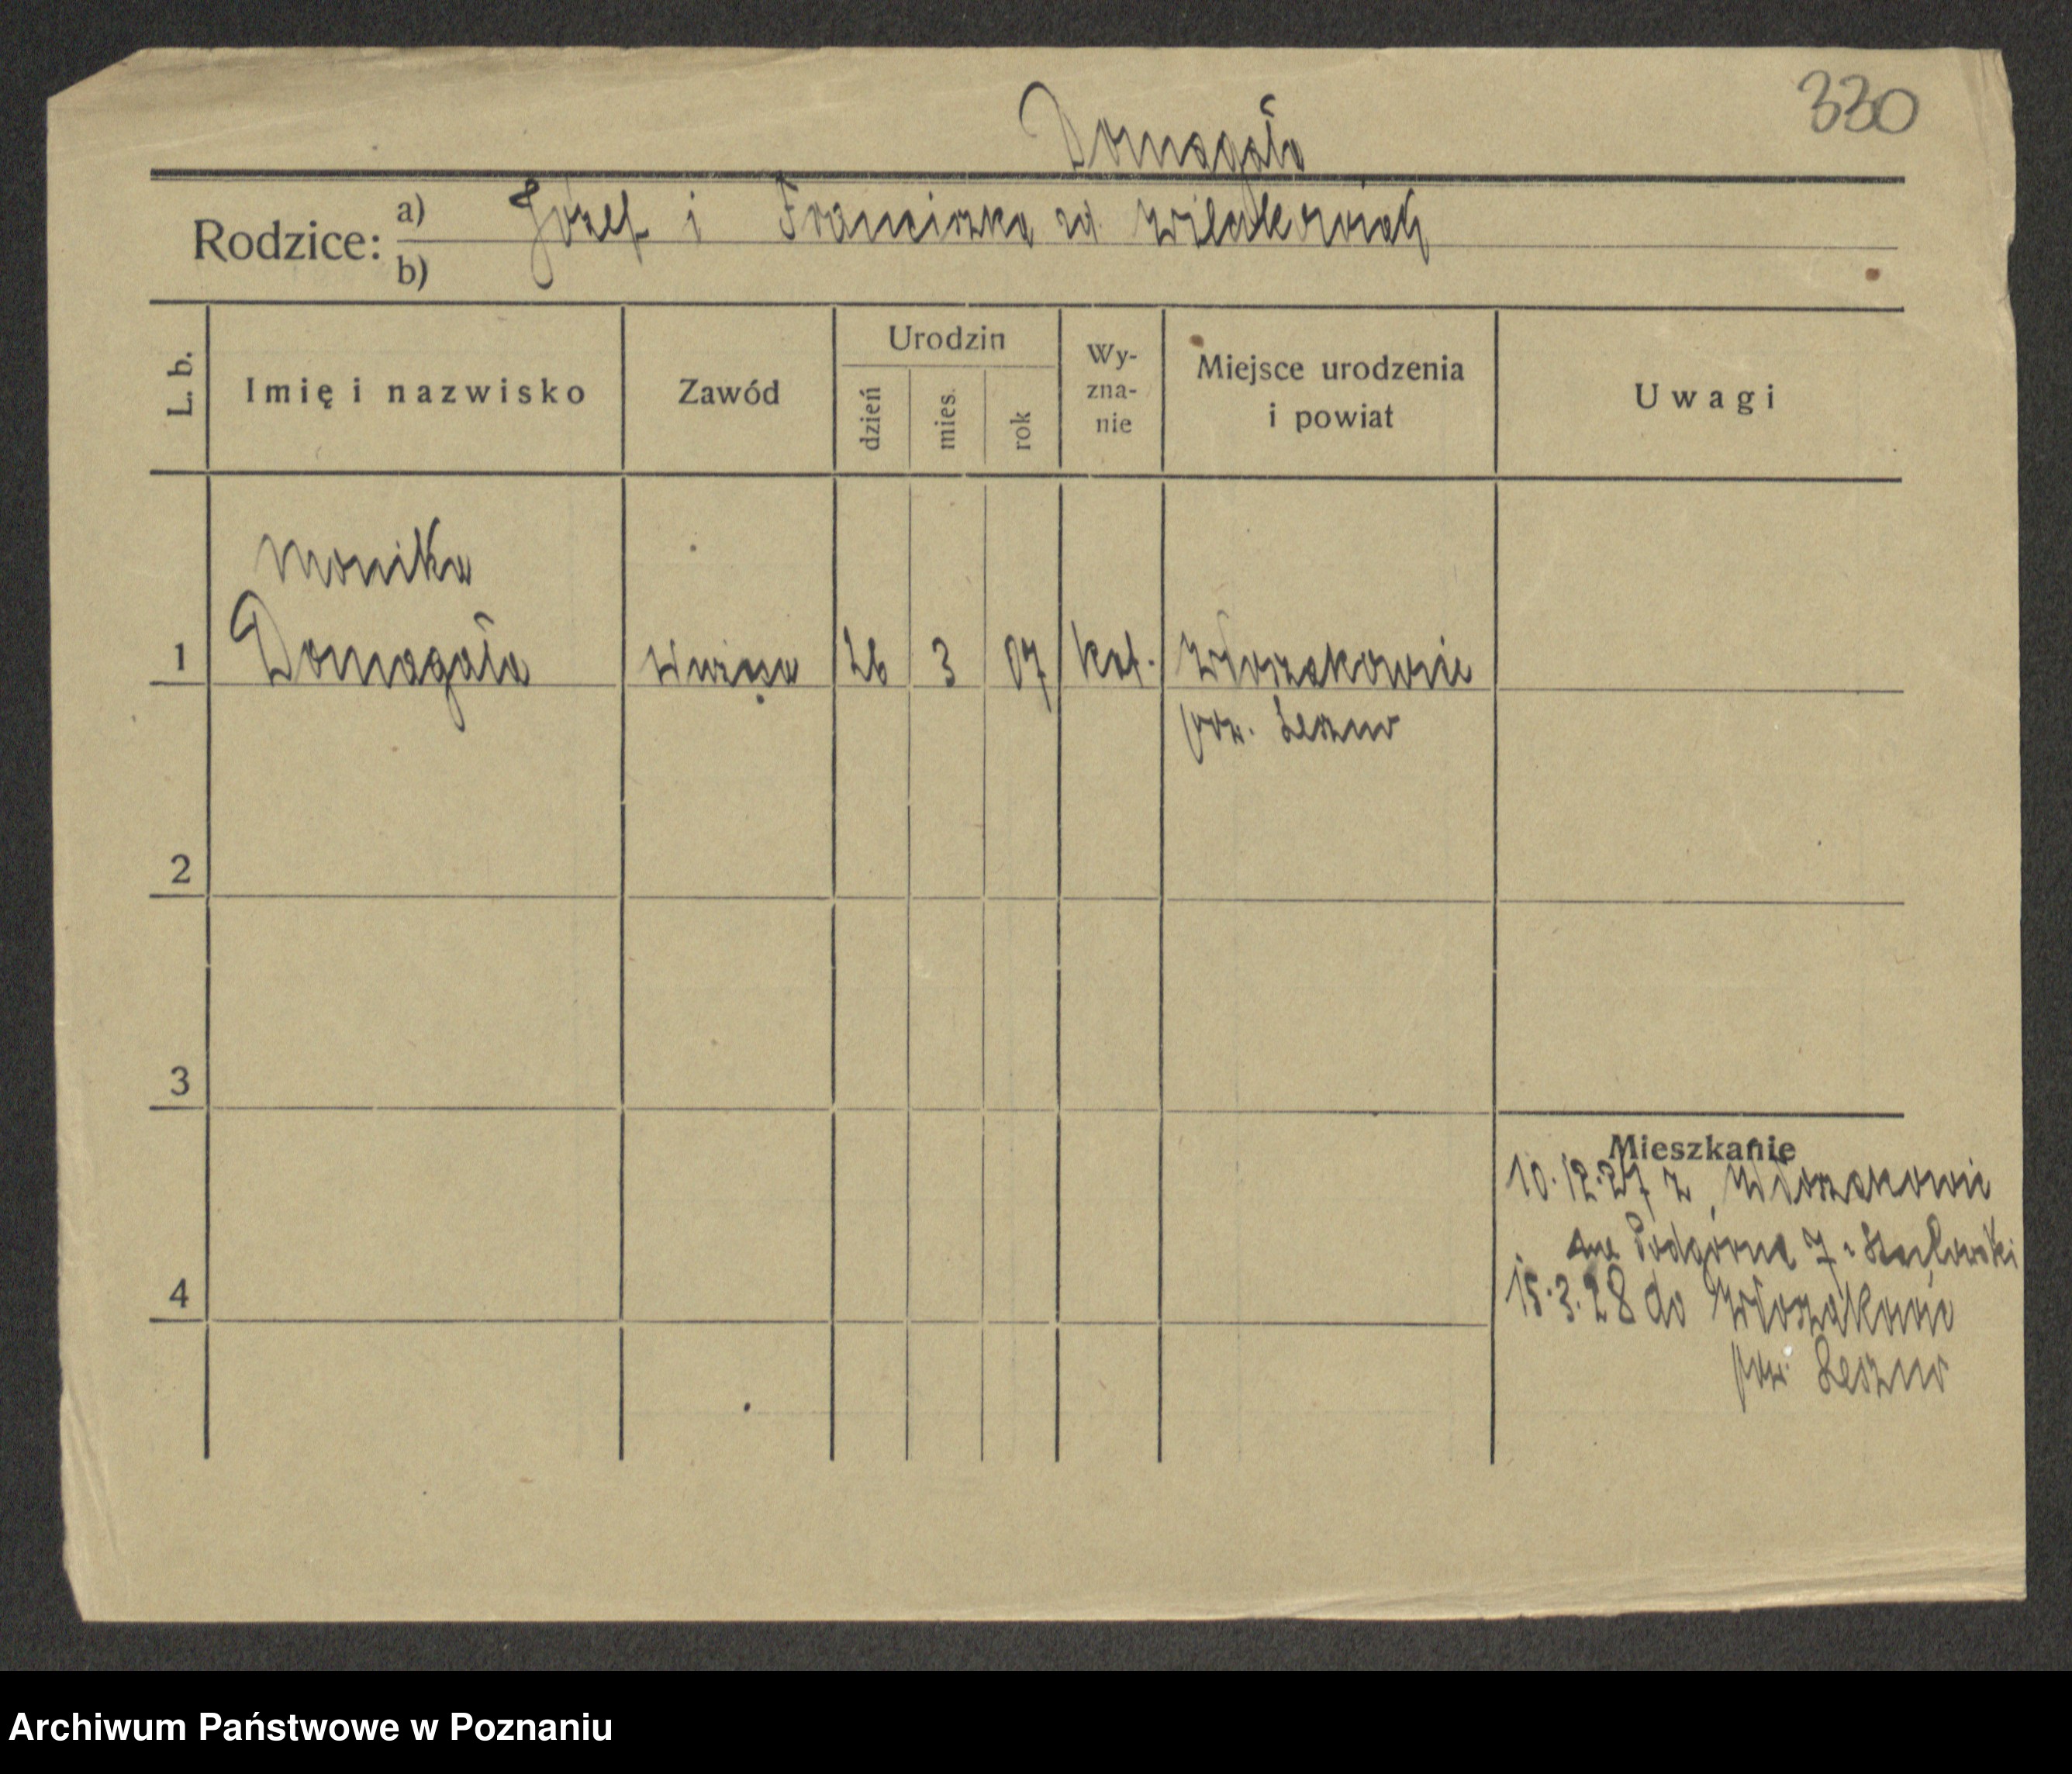 330
Domagała
Rodzice: a) Józef i Franciszka zd
b)
L. b. Imię i nazwisko Zawód Urodzin dzień mies. rok Wy-zna-nie Miejsce urodzenia i powiat Uwagi
Monika
1 Domagała 26 3 07 kat. Włoszakowice
pow. Leszno
2
3
Mieszkanie
10.12.27 z Włoszakowic
Podgórna 7
4 15.3.28 do Włoszakowic
pow. Leszno
Archiwum Państwowe w Poznaniu